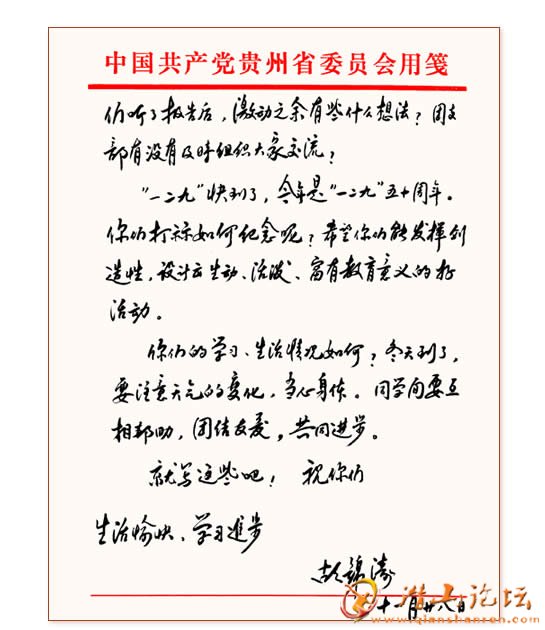 中国共产党贵州省委员会用笺
们听了报告后，激动之余有些什么想法？团支
部有没有及时组织大家交流？
“一二九”快到了，今年是“一二九”五十周年。
你们打祘如何纪念呢？希望你们能发挥创
造性，设计出生动、活泼、富有教育意义的好
活动。
你们的学习、生活情况如何？冬天到了，
要注意天气的变化，当心身体。同学间要互
相帮助，团结友爱，共同进步。
就写这些吧！ 祝你们
生活愉快、学习進步
胡锦涛
十一月廿八日
潜山论坛
www.qianshanren.com